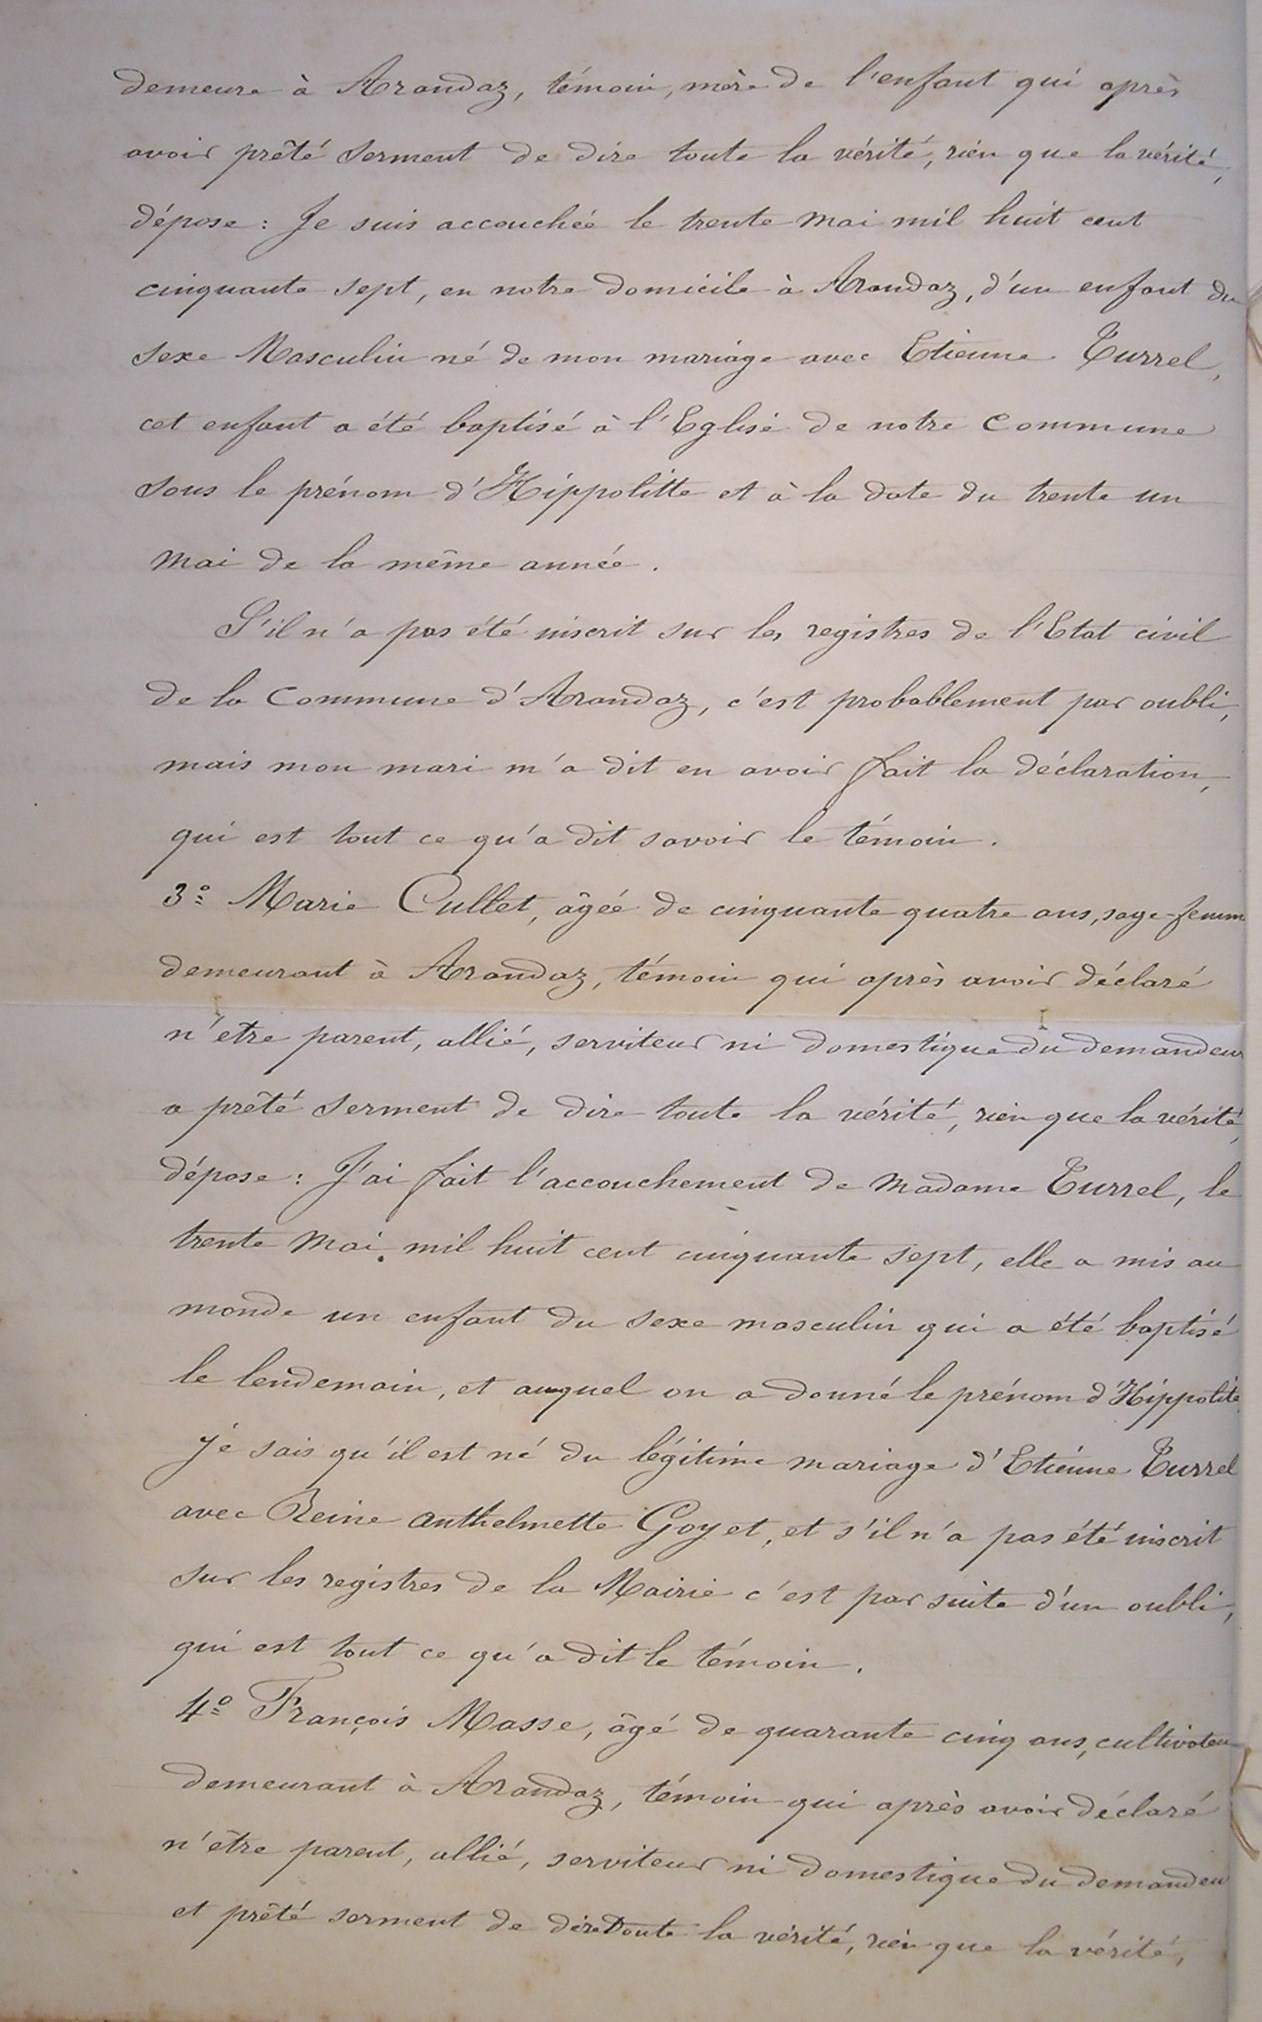 demeure à Arandaz, témoin, mère de l'enfant qui après
avoir prêté serment de dire toute la vérité, rien que la vérité,
dépose : Je suis accouchée le trente Mai mil huit cent
cinquante sept, en notre domicile à Arandaz, d'un enfant du
sexe Masculin né de mon mariage avec Etienne Turrel,
cet enfant a été baptisé à l'Eglise de notre Commune
sous le prénom d'Hippolitte et à la date du trente un
Mai de la même année.
S'il n'a pas été inscrit sur les registres de l'Etat civil
de la Commune d'Arandaz, c'est probablement par oubli,
mais mon mari m'a dit en avoir fait la déclaration,
qui est tout ce qu'a dit savoir le témoin.
3º Marie Cullet, âgée de cinquante quatre ans, sage-femme
demeurant à Arandaz, témoin qui après avoir déclaré
n'être parent, allié, serviteur ni domestique du demandeur
a prêté serment de dire toute la vérité, rien que la vérité,
dépose : J'ai fait l'accouchement de Madame Turrel, le
trente Mai mil huit cent cinquante sept, elle a mis au
monde un enfant du sexe masculin qui a été baptisé
le lendemain, et auquel on a donné le prénom d'Hippolite
je sais qu'il est né du légitime mariage d'Etienne Turrel
avec Reine Anthelmette Goyet, et s'il n'a pas été inscrit
sur les registres de la Mairie c'est par suite d'un oubli,
qui est tout ce qu'a dit le témoin.
4º François Masse, âgé de quarante cinq ans, cultivateur
demeurant à Arandaz, témoin qui après avoir déclaré
n'être parent, allié, serviteur ni domestique du demandeur
et prêté serment de dire toute la vérité, rien que la vérité,